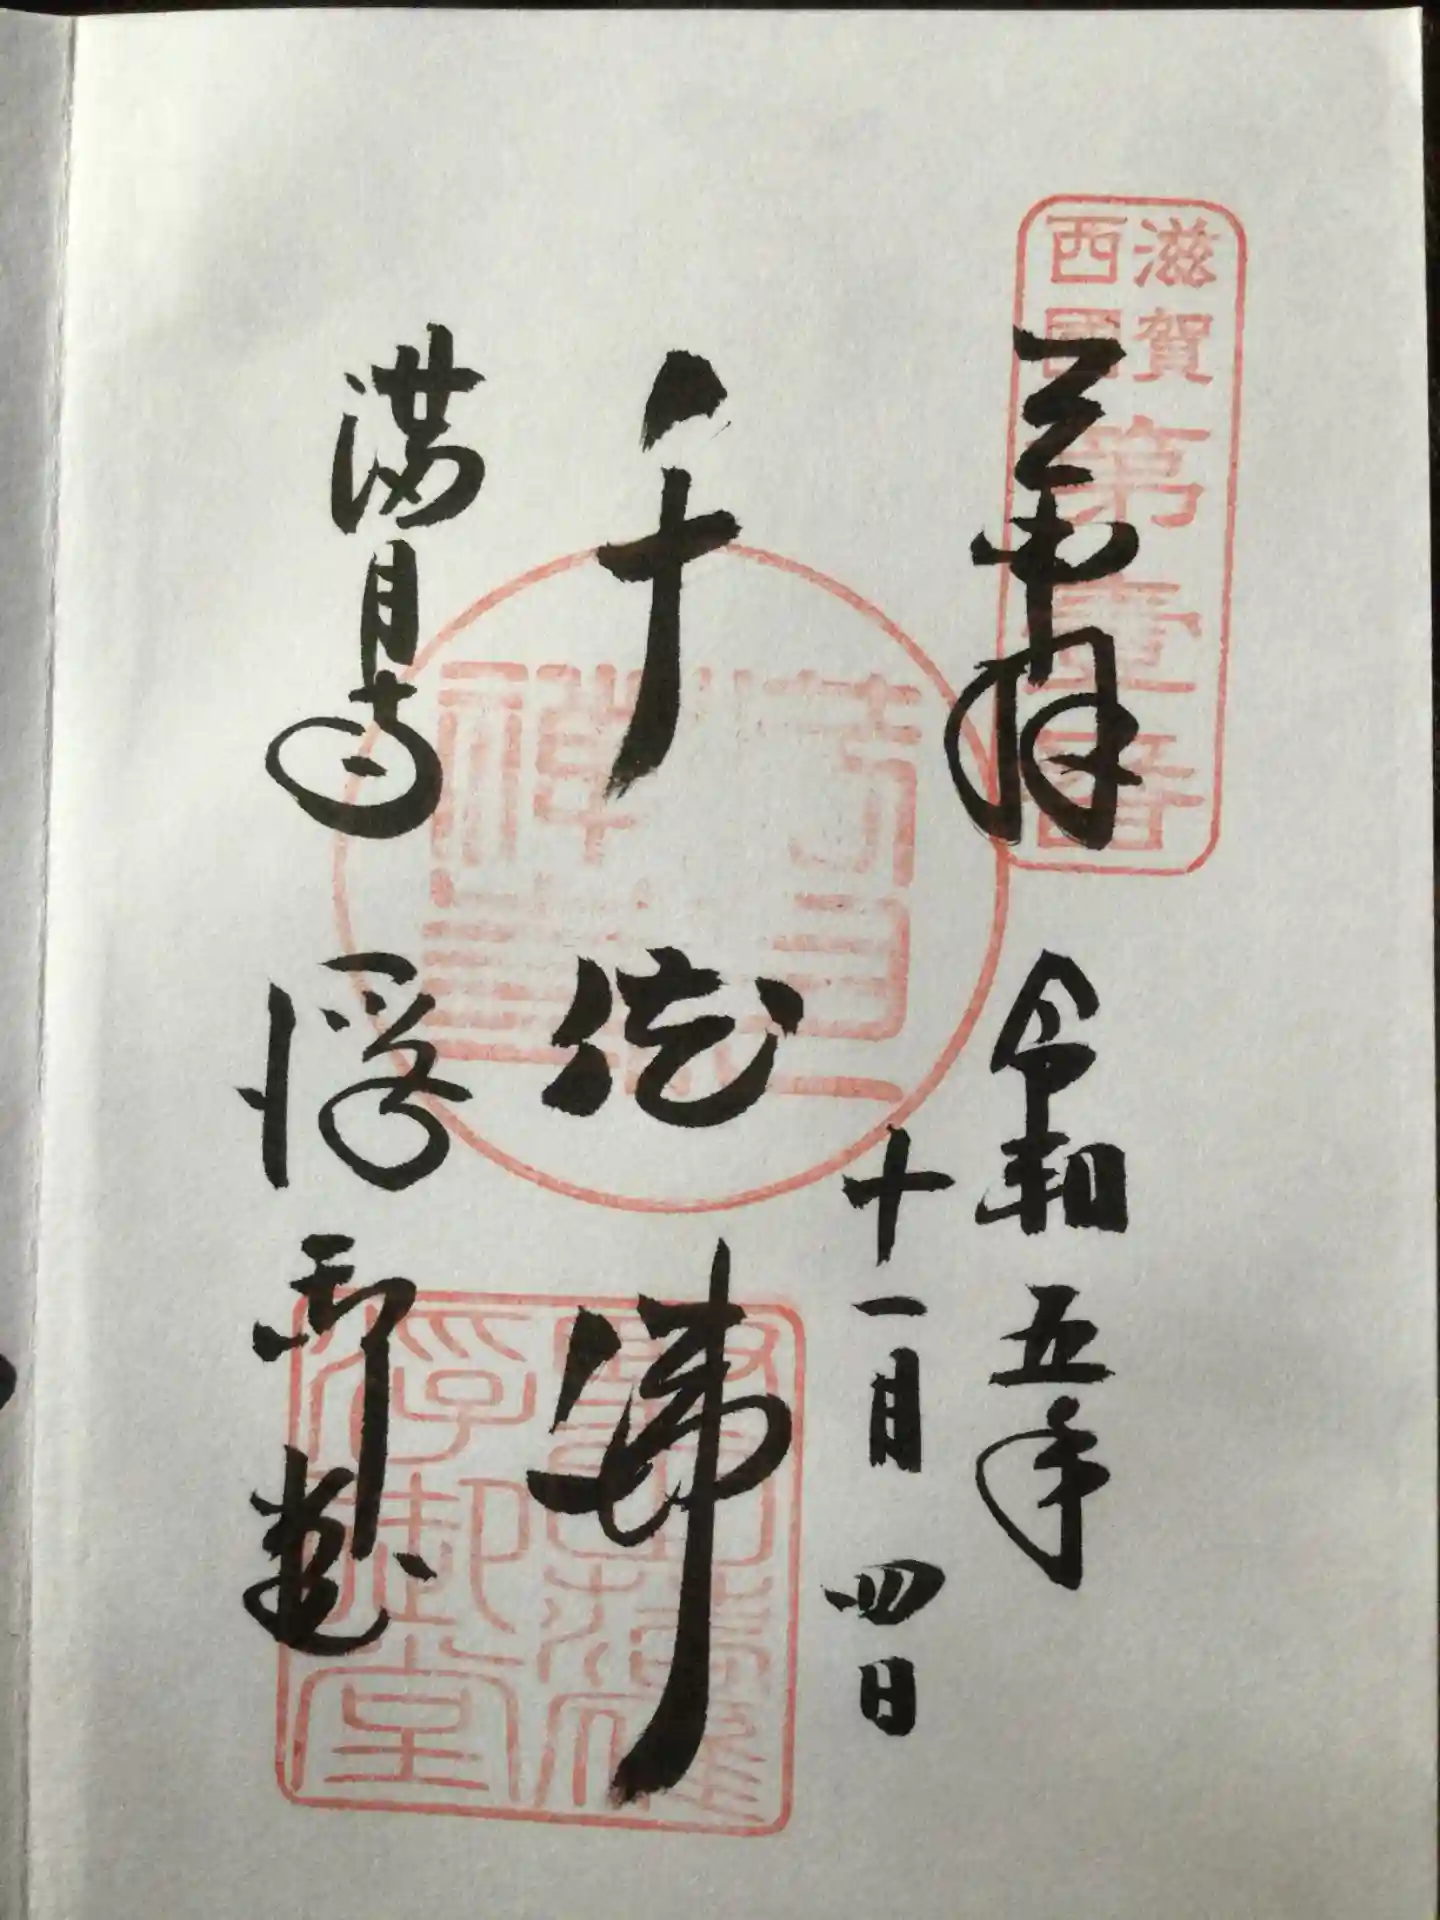 滋賀
西國
第壹番
奉拝
令和五年
十一月四日
千体佛
満月寺
浮御堂
浮御堂